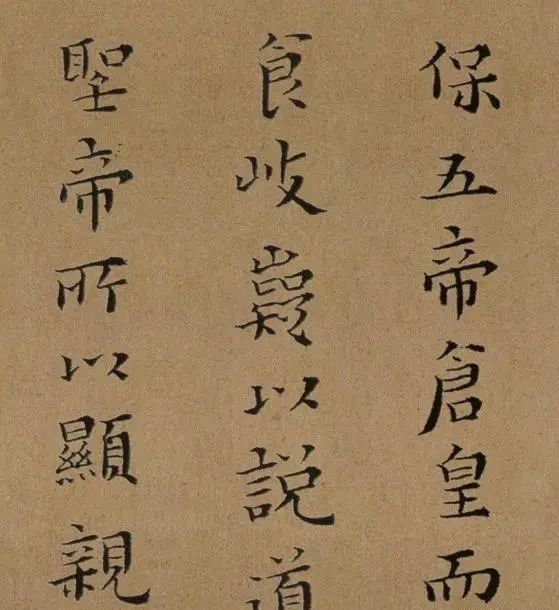 保五帝倉皇而
食岐嶷以説道
聖帝所以顯親